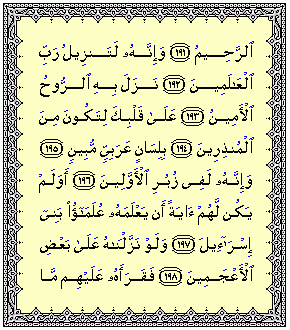 ٱلرَّحِيمُ ١٩١ وَإِنَّهُۥ لَتَنزِيلُ رَبِّ
ٱلْعَٰلَمِينَ ١٩٢ نَزَلَ بِهِ ٱلرُّوحُ
ٱلْأَمِينُ ١٩٣ عَلَىٰ قَلْبِكَ لِتَكُونَ مِنَ
ٱلْمُنذِرِينَ ١٩٤ بِلِسَانٍ عَرَبِيٍّ مُّبِينٍ ١٩٥
وَإِنَّهُۥ لَفِى زُبُرِ ٱلْأَوَّلِينَ ١٩٦ أَوَلَمْ
يَكُن لَّهُمْ ءَايَةً أَن يَعْلَمَهُۥ عُلَمَٰٓؤُا۟ بَنِىٓ
إِسْرَٰٓءِيلَ ١٩٧ وَلَوْ نَزَّلْنَٰهُ عَلَىٰ بَعْضِ
ٱلْأَعْجَمِينَ ١٩٨ فَقَرَأَهُۥ عَلَيْهِم مَّا